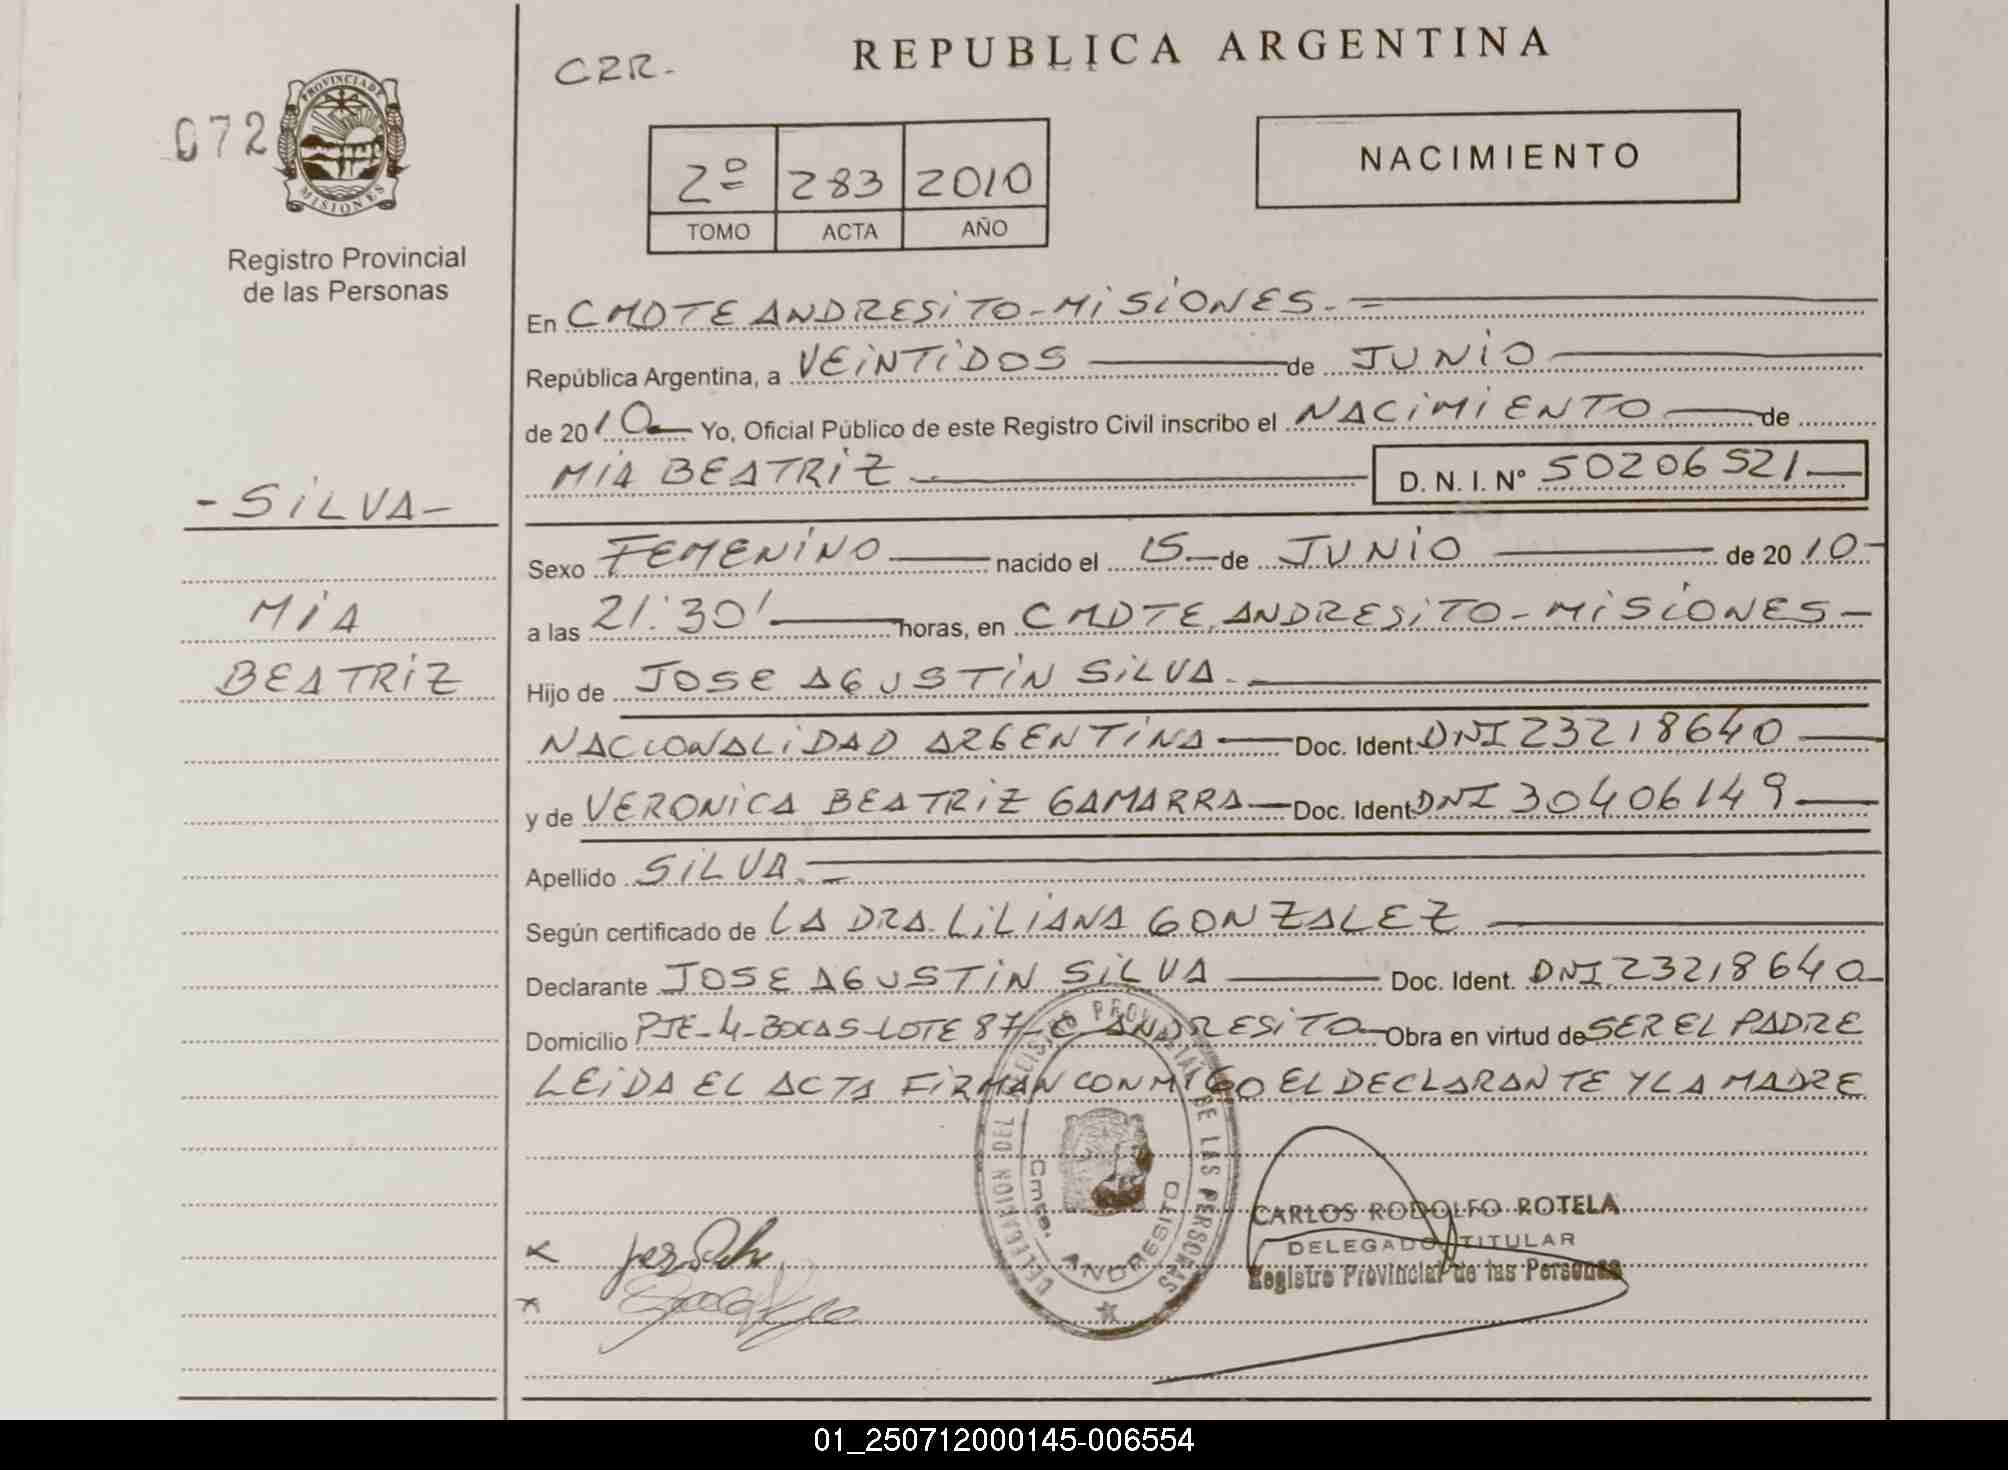 REPUBLICA ARGENTINA
CRR.
072
PROVINCIA DE
MISIONES
Registro Provincial
de las Personas
2º 283 2010
TOMO ACTA AÑO
NACIMIENTO
En CMDTE ANDRESITO-MISIONES.
República Argentina, a VEINTIDOS de JUNIO
de 2010 Yo, Oficial Público de este Registro Civil inscribo el NACIMIENTO de
MIA BEATRIZ D. N. I. Nº 50206521
-SILVA-
MIA
BEATRIZ
Sexo FEMENINO nacido el 15 de JUNIO de 2010-
a las 21:30' horas, en CMDTE ANDRESITO-MISIONES-
Hijo de JOSE AGUSTIN SILVA.
NACIONALIDAD ARGENTINA Doc. Ident. DNI 23218640
y de VERONICA BEATRIZ GAMARRA Doc. Ident. DNI 30406149
Apellido SILVA.
Según certificado de LA DRA. LILIANA GONZALEZ
Declarante JOSE AGUSTIN SILVA Doc. Ident. DNI 23218640
Domicilio PJE-4-BOCAS-LOTE 87-C ANDRESITO Obra en virtud de SER EL PADRE
LEIDA EL ACTA FIRMAN CONMIGO EL DECLARANTE Y LA MADRE
DELEGACION DEL REGISTRO PROVINCIAL DE LAS PERSONAS
Cmte. ANDRESITO
CARLOS RODOLFO ROTELA
DELEGADO TITULAR
Registro Provincial de las Personas
01_250712000145-006554